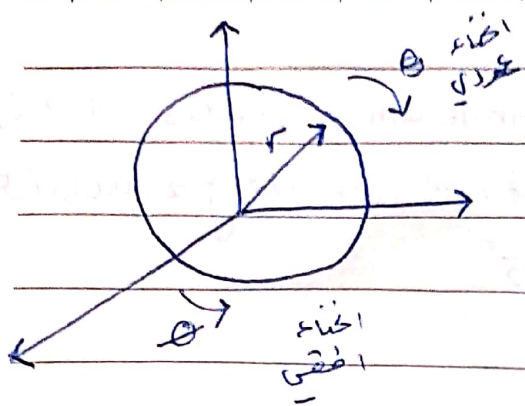 انحناء
θ
عمودي
r
θ
انحناء
افقي